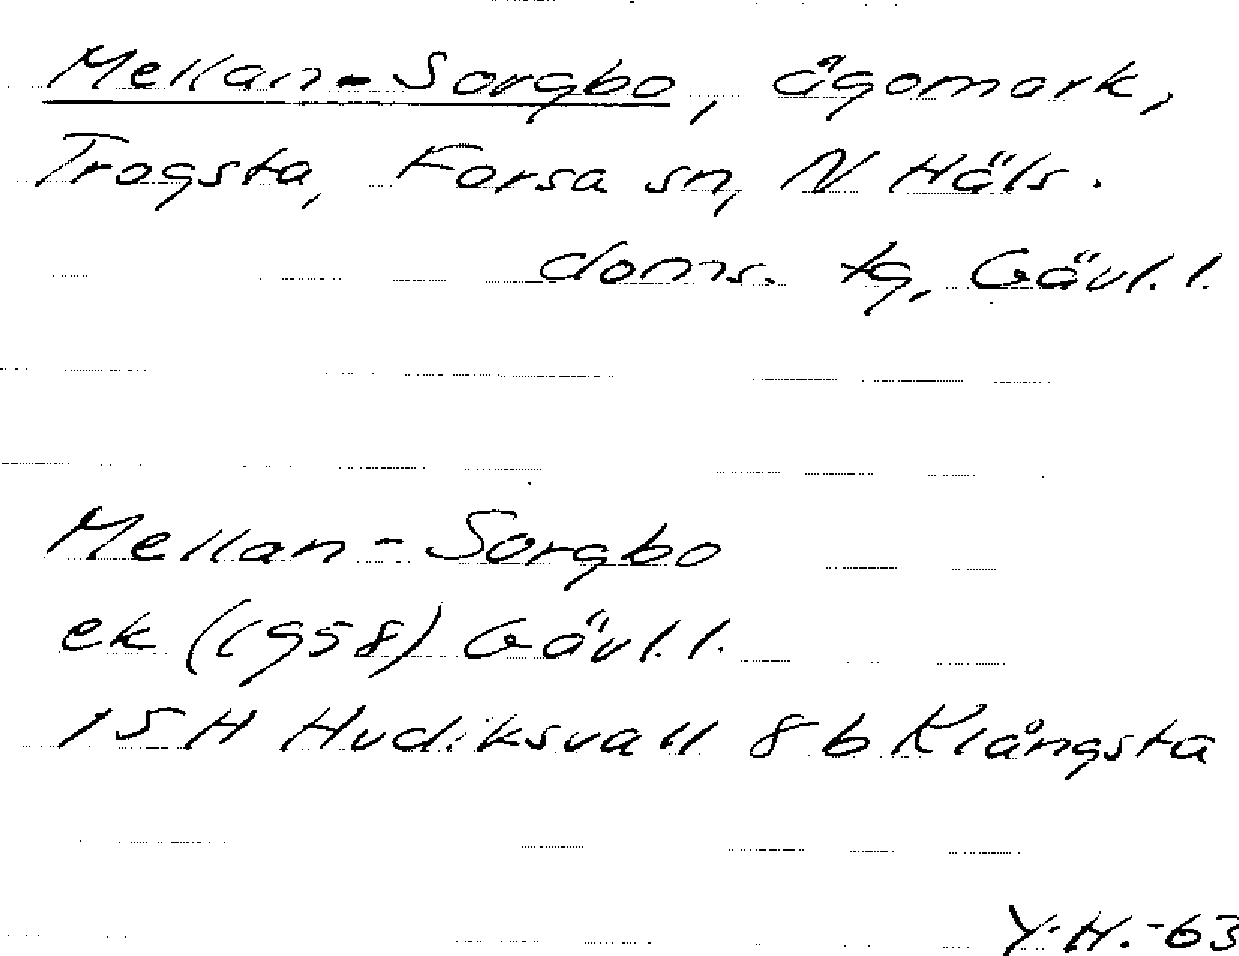 Mellan-Sorgbo, ägomark,
Trogsta, Forsa sn, N Häls.
doms. tg, Gävl. l.
Mellan-Sorgbo
ek (1958) Gävl. l.
15H Hudiksvall 8b Klångsta
Y.H.-63